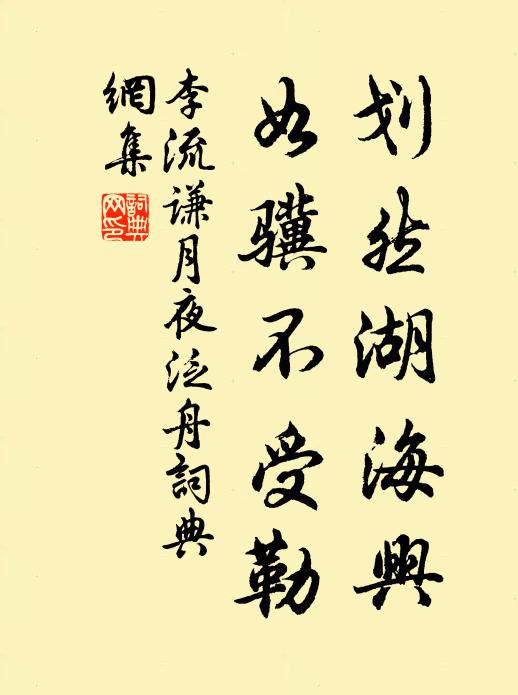 划然湖海興
如驥不受勒
李流谦月夜泛舟詞典
網集
詞典
网印